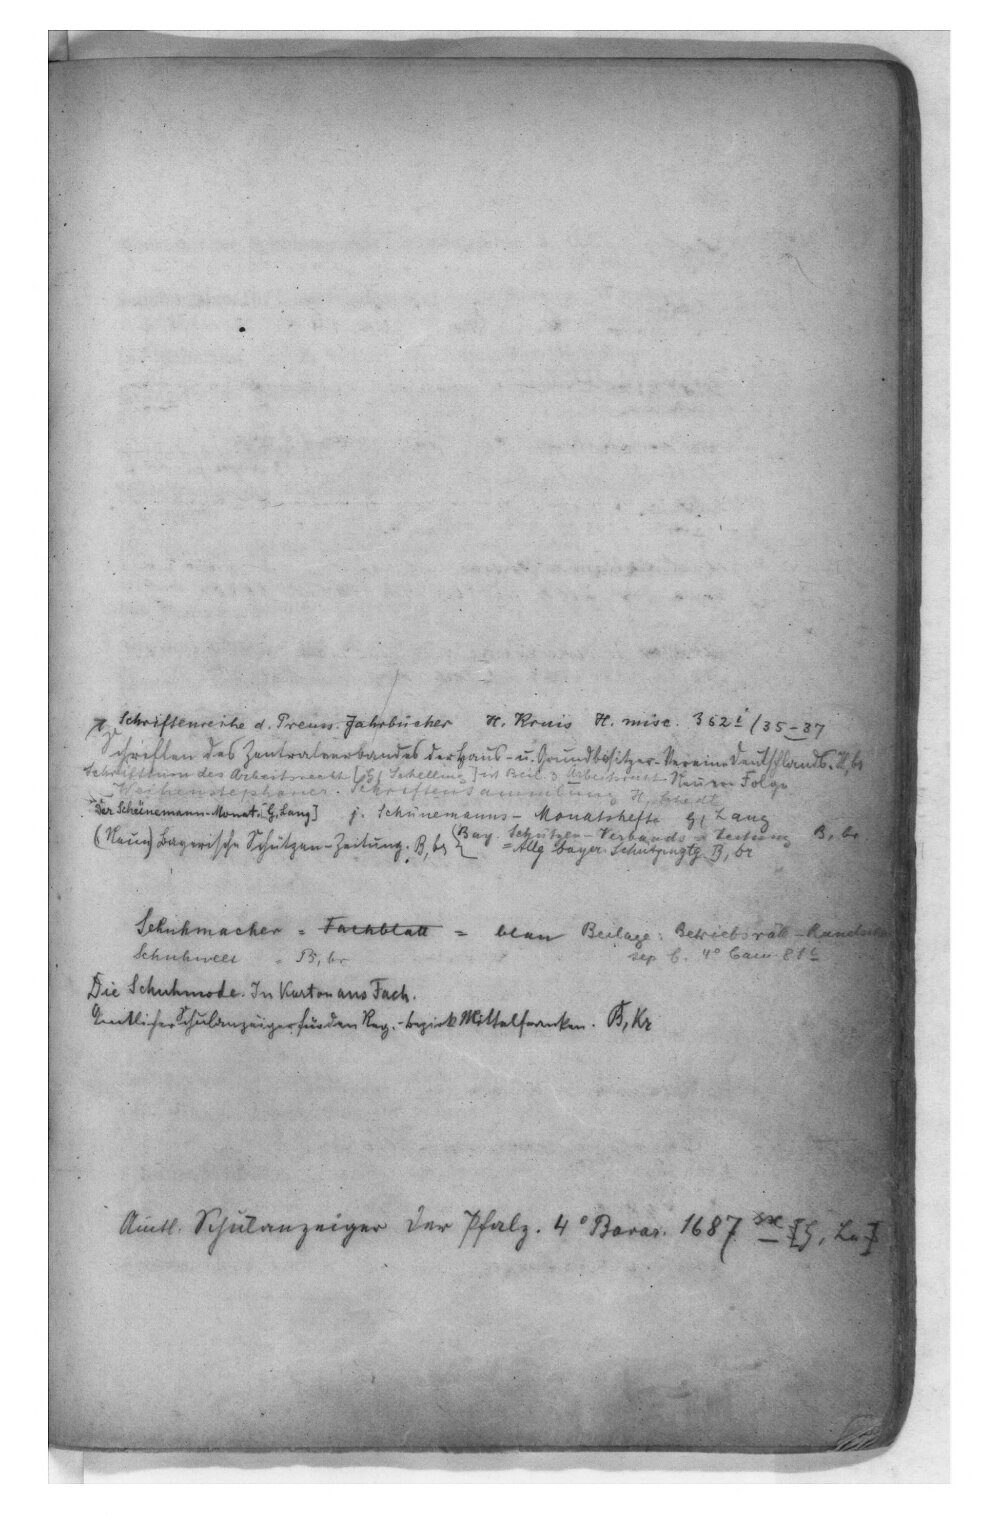 Schriftenreihe d. Preuss. Jahrbücher H. Kruis H. misc. 352 i /35-37
Schriften des Zentralverbandes der Haus- u. Grundbesitzer-Vereine Deutschlands. H, br
Schrifttum des Arbeitsrecht [ Schelling ] ist Beil. z. Arbeitsrecht Neue Folge
Weihenstephaner Schriftensammlung H,
Der Schünemann-Monat. [G, Lang] j. Schünemanns-Monatshefte G, Lang
(Neue) bayerische Schützen-Zeitung. B, br (Bay. Schützen-Verbands-Zeitung B, br
= Allg. bayer. Schützenztg. B, br
Schuhmacher = Fachblatt = blau Beilage: Betriebsrat-
Schuhwelt = B, br sep. b. 4° Cam.
Die Schuhmode. In Karton aus Fach.
Amtlicher Schulanzeiger für den Reg.-bezirk Mittelfranken. B, Kr
Amtl. Schulanzeiger der Pfalz. 4° Bavar. 1687 sx [G, La]